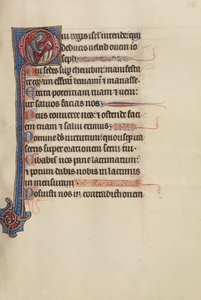 115
Qui regis isrl intende: qui
deducis uelud ouem io
seph.
Qui sedes sup cherubim: manifesta
re coram effraim beniamin & manasse.
Excita potentiam tuam & ueni:
ut saluos facias nos.
Deus conuerte nos: & ostende faci
em tuam & salui erimus.
Domine deus uirtutum: quousq; ira
sceris super orationem serui tui.
Cibabis nos pane lacrimarum:
& potum dabis nobis in lacrimis
in mensuram.
Posuisti nos in contradictionem